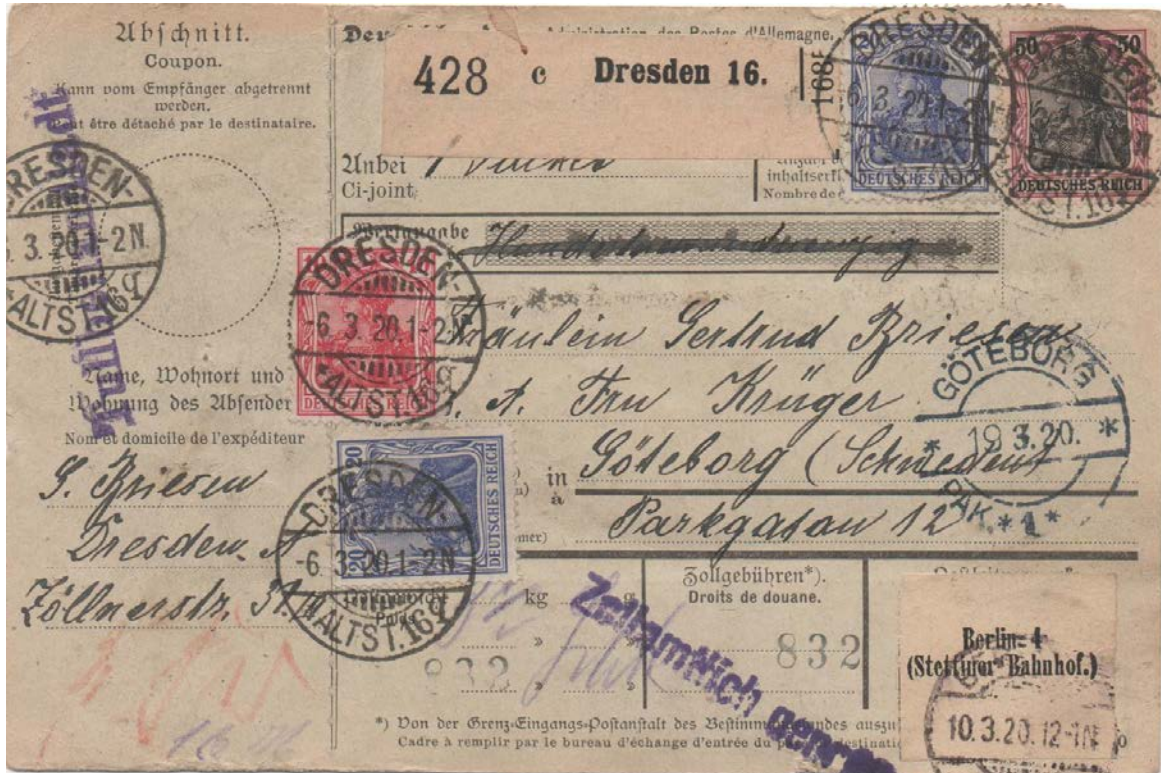 Abschnitt.
Coupon.
Kann vom Empfänger abgetrennt
werden.
Peut être détaché par le destinataire.
DRESDEN-
6. 3. 20. 1-2N.
*ALTST. 16 q
Name, Wohnort und
Wohnung des Absender
Nom et domicile de l'expéditeur
G. Briesen
Dresden. A
Zöllnerstr.
Administration des Postes d'Allemagne.
428 c Dresden 16.
168
Anbei
Ci-joint
inhaltserkl
Nombre de
20
DEUTSCHES REICH
DRESDEN
6. 3. 20. 1-2N
50 50
DEUTSCHES REICH
DRESDEN
Wertangabe
DRESDEN-
-6. 3. 20. 1-2N
*ALTST. 16 q
DEUTSCHES REICH
Fräulein Gertrud Briesen
A. Frau Krüger
in
à
Göteborg (Schweden)
Parkgatan 12
GÖTEBORG
* 19. 3. 20. *
PAK. * 1 *
20 20
DEUTSCHES REICH
DRESDEN-
-6. 3. 20. 1-2N
*ALTST. 16 q
kg g
Zollgebühren*).
Droits de douane.
832
832
Zollamtlich
Berlin-4
(Stettiner Bahnhof.)
10. 3. 20. 12-1N
*) Von der Grenz-Eingangs-Postanstalt des
Cadre à remplir par le bureau d'échange d'entrée du